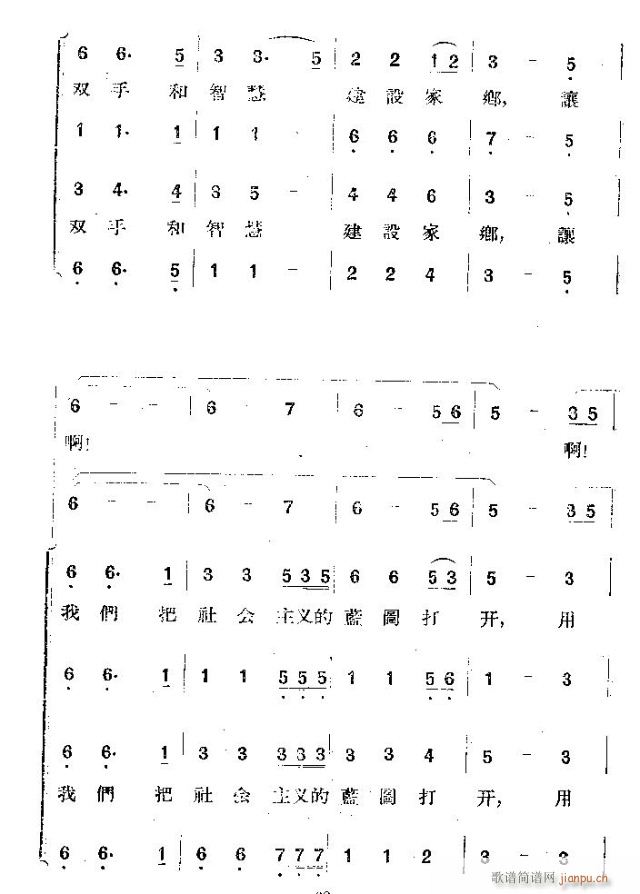 6 6· 5 | 3 3· 5 | 2 2 1 2 | 3 – 5
双手 和智慧 建設家鄉，讓
1 1· 1 | 1 1 – | 6 6 6 | 7 – 5
3 4· 4 | 3 5 – | 4 4 6 | 3 – 5
双手 和智慧 建設家鄉，讓
6 6· 5 | 1 1 – | 2 2 4 | 3 – 5
6 – – | 6 6 7 | 6 – 5 6 | 5 – 3 5
啊！ 啊！
6 – – | 6 – 7 | 6 – 5 6 | 5 – 3 5
6 6· 1 | 3 3 5 3 5 | 6 6 5 3 | 5 – 3
我們 把社会主义的藍圖打开，用
6 6· 1 | 1 1 5 5 5 | 1 1 5 6 | 1 – 3
6 6· 1 | 3 3 3 3 3 | 3 3 4 | 5 – 3
我們 把社会主义的藍圖打开，用
6 6· 5 | 6 6 7 7 7 | 1 1 2 | 3 – 3
歌谱简谱网
jianpu.cn